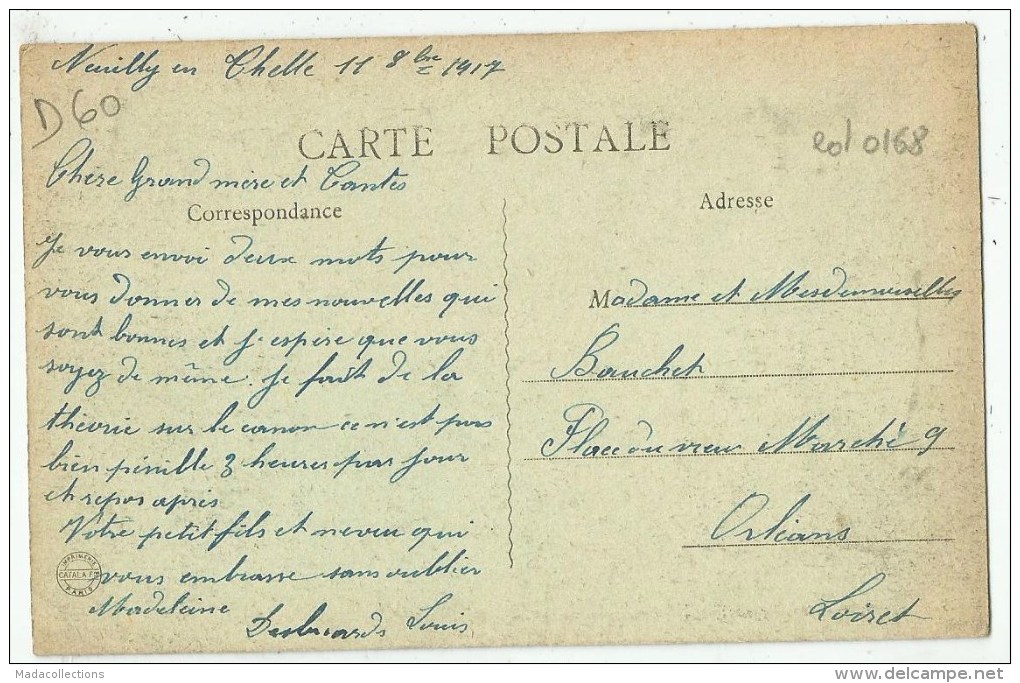 Neuilly en Thelle 11 8bre 1917
D60
CARTE POSTALE
201 0168
Chère Grand mère et Tantes
Correspondance
Adresse
Je vous envoi deux mots pour
vous donner de mes nouvelles qui
sont bonnes et j'espère que vous
soyez de même. Je fait de la
théorie sur le canon ce n'est pas
bien pénille 3 heures par jour
et repos après
Votre petit fils et neveu qui
vous embrasse sans oublier
Madeleine
Louis
Madame et Mesdemoiselles
Bauchet
Place du vieux Marché 9
Orléans
Loiret
IMPRIMERIE
CATALA FRES
PARIS
Madacollections
www.delcampe.net